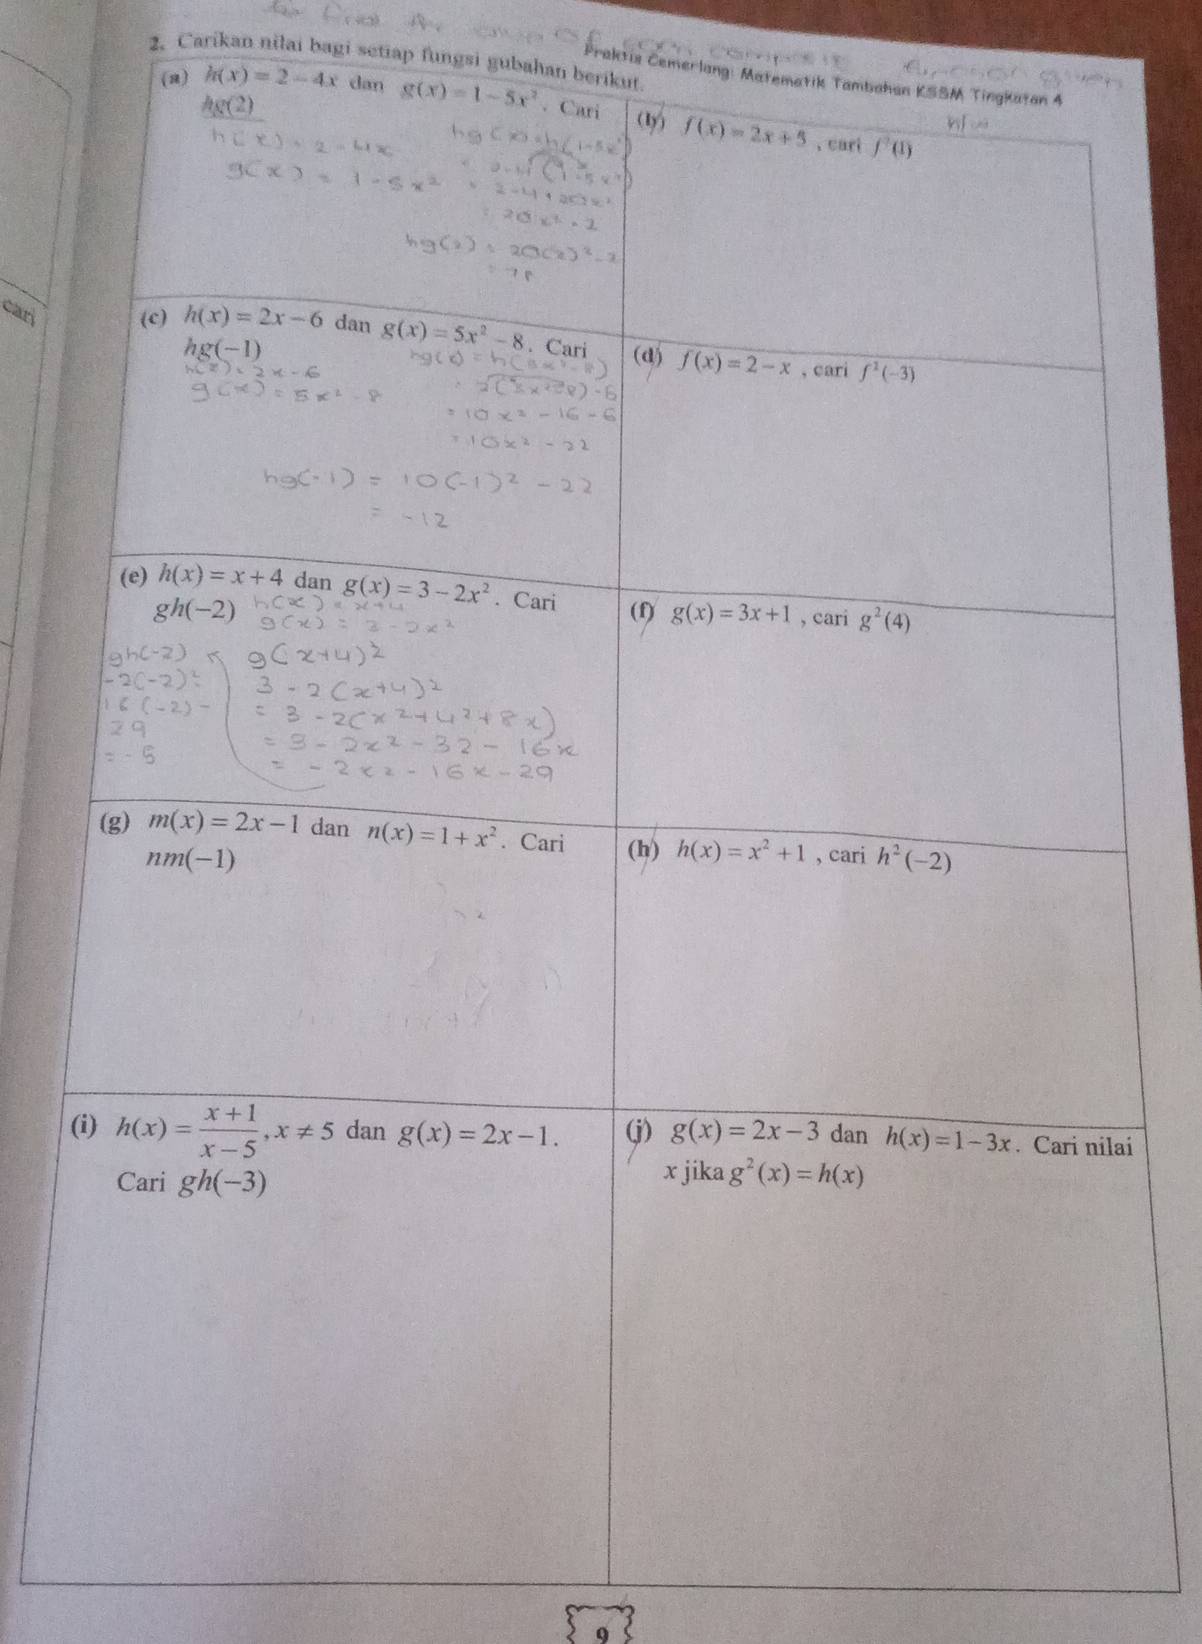 Praktis Cemerlang: Matematik Tambahan KSSM Tingkatan 4
2. Carikan nilai bagi setiap fungsi gubahan berikut.
(a) h(x) = 2 – 4x dan g(x) = 1 – 5x². Cari
hg(2)
h(x) = 2 - 4x
g(x) = 1 - 5x²
hg(x) = h(1-5x²)
= 2 - 4 + 20x²
hg(2) = 20(2)² - 2
= 78
(b) f(x) = 2x + 5 , cari f²(1)
cari
(c) h(x) = 2x – 6 dan g(x) = 5x² – 8. Cari
hg(−1)
h(x) = 2x - 6
g(x) = 5x² - 8
hg(x) = h(5x² - 8)
= 2(5x² - 8) - 6
= 10x² - 16 - 6
= 10x² - 22
hg(-1) = 10(-1)² - 22
= -12
(d) f(x) = 2 – x , cari f²(−3)
(e) h(x) = x + 4 dan g(x) = 3 – 2x². Cari
gh(−2)
h(x) = x + 4
g(x) = 3 - 2x²
g(x+4)²
3 - 2(x+4)²
= 3 - 2(x² + 4² + 8x)
= 3 - 2x² - 32 - 16x
= -2x² - 16x - 29
gh(-2)
-2(-2)²-
16(-2) -
29
= -5
(f) g(x) = 3x + 1 , cari g²(4)
(g) m(x) = 2x – 1 dan n(x) = 1 + x². Cari
nm(−1)
(h) h(x) = x² + 1 , cari h²(−2)
(i) h(x) = (x + 1)/(x – 5), x ≠ 5 dan g(x) = 2x – 1.
Cari gh(−3)
(j) g(x) = 2x – 3 dan h(x) = 1 – 3x. Cari nilai
x jika g²(x) = h(x)
9